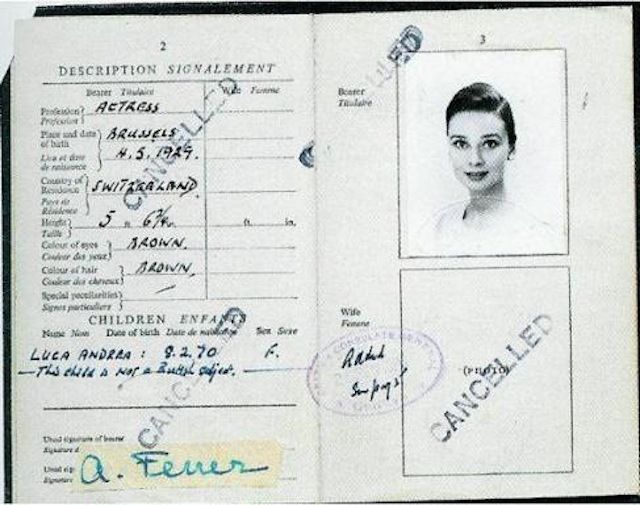 2
DESCRIPTION SIGNALEMENT
Bearer Titulaire
Wife Femme
Profession
Profession
ACTRESS
Place and date
of birth
Lieu et date
de naissance
BRUSSELS
4.5.1929.
Country of
Residence
Pays de
Résidence
SWITZERLAND
Height
Taille
5 ft 6¾ in.
ft. in.
Colour of eyes
Couleur des yeux
BROWN.
Colour of hair
Couleur des cheveux
BROWN.
Special peculiarities
Signes particuliers
CHILDREN ENFANTS
Name Nom Date of birth Date de naissance Sex Sexe
LUCA ANDREA: 8.2.70 F.
This child is not a British subject.
Usual signature of bearer
Signature d
Usual sig
Signature
A. Ferrer
CANCELLED
CANCELLED
3
Bearer
Titulaire
CANCELLED
Wife
Femme
(PHOTO)
CANCELLED